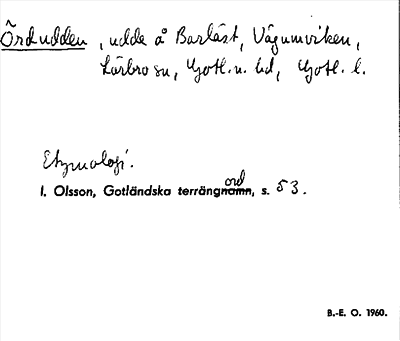 Õrdudden, udde å Barläst, Vägumviken,
Lärbro sn, Gotl. n. hd, Gotl. l.
Etymologi.
I. Olsson, Gotländska terrängnamn, s. 53.
ord
B.-E. O. 1960.